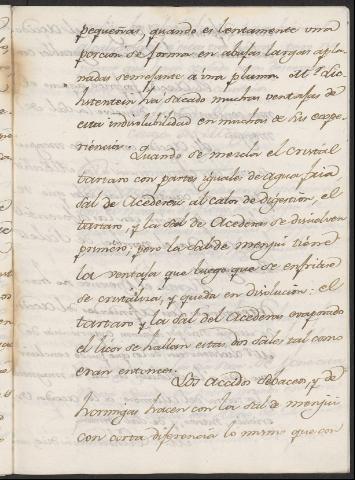 pequeñas, quando es lentamente una
porcion se forma en abujas largas apla
nadas semejante a una pluma. Mr. Lic
htentein ha sacado muchas ventajas de
esta indisolubilidad en muchas de sus expe
riencias.
Quando se mezcla el cristal
tartaro con partes iguales de agua fria
sal de Acederas al calor de digestion, el
tartaro, y la sal de Acedera se disuelven
primero; pero la sal de menjui tiene
la ventaja que luego que se enfrie
se cristaliza, y queda en disolucion: el
tartaro y la sal del Acederas evaporado
el licor se hallan estas dos sales tal como
eran entonces.
Los accidos sebaceo, y de
hormigas hacen con la sal de menjui
con corta diferencia lo mismo que con